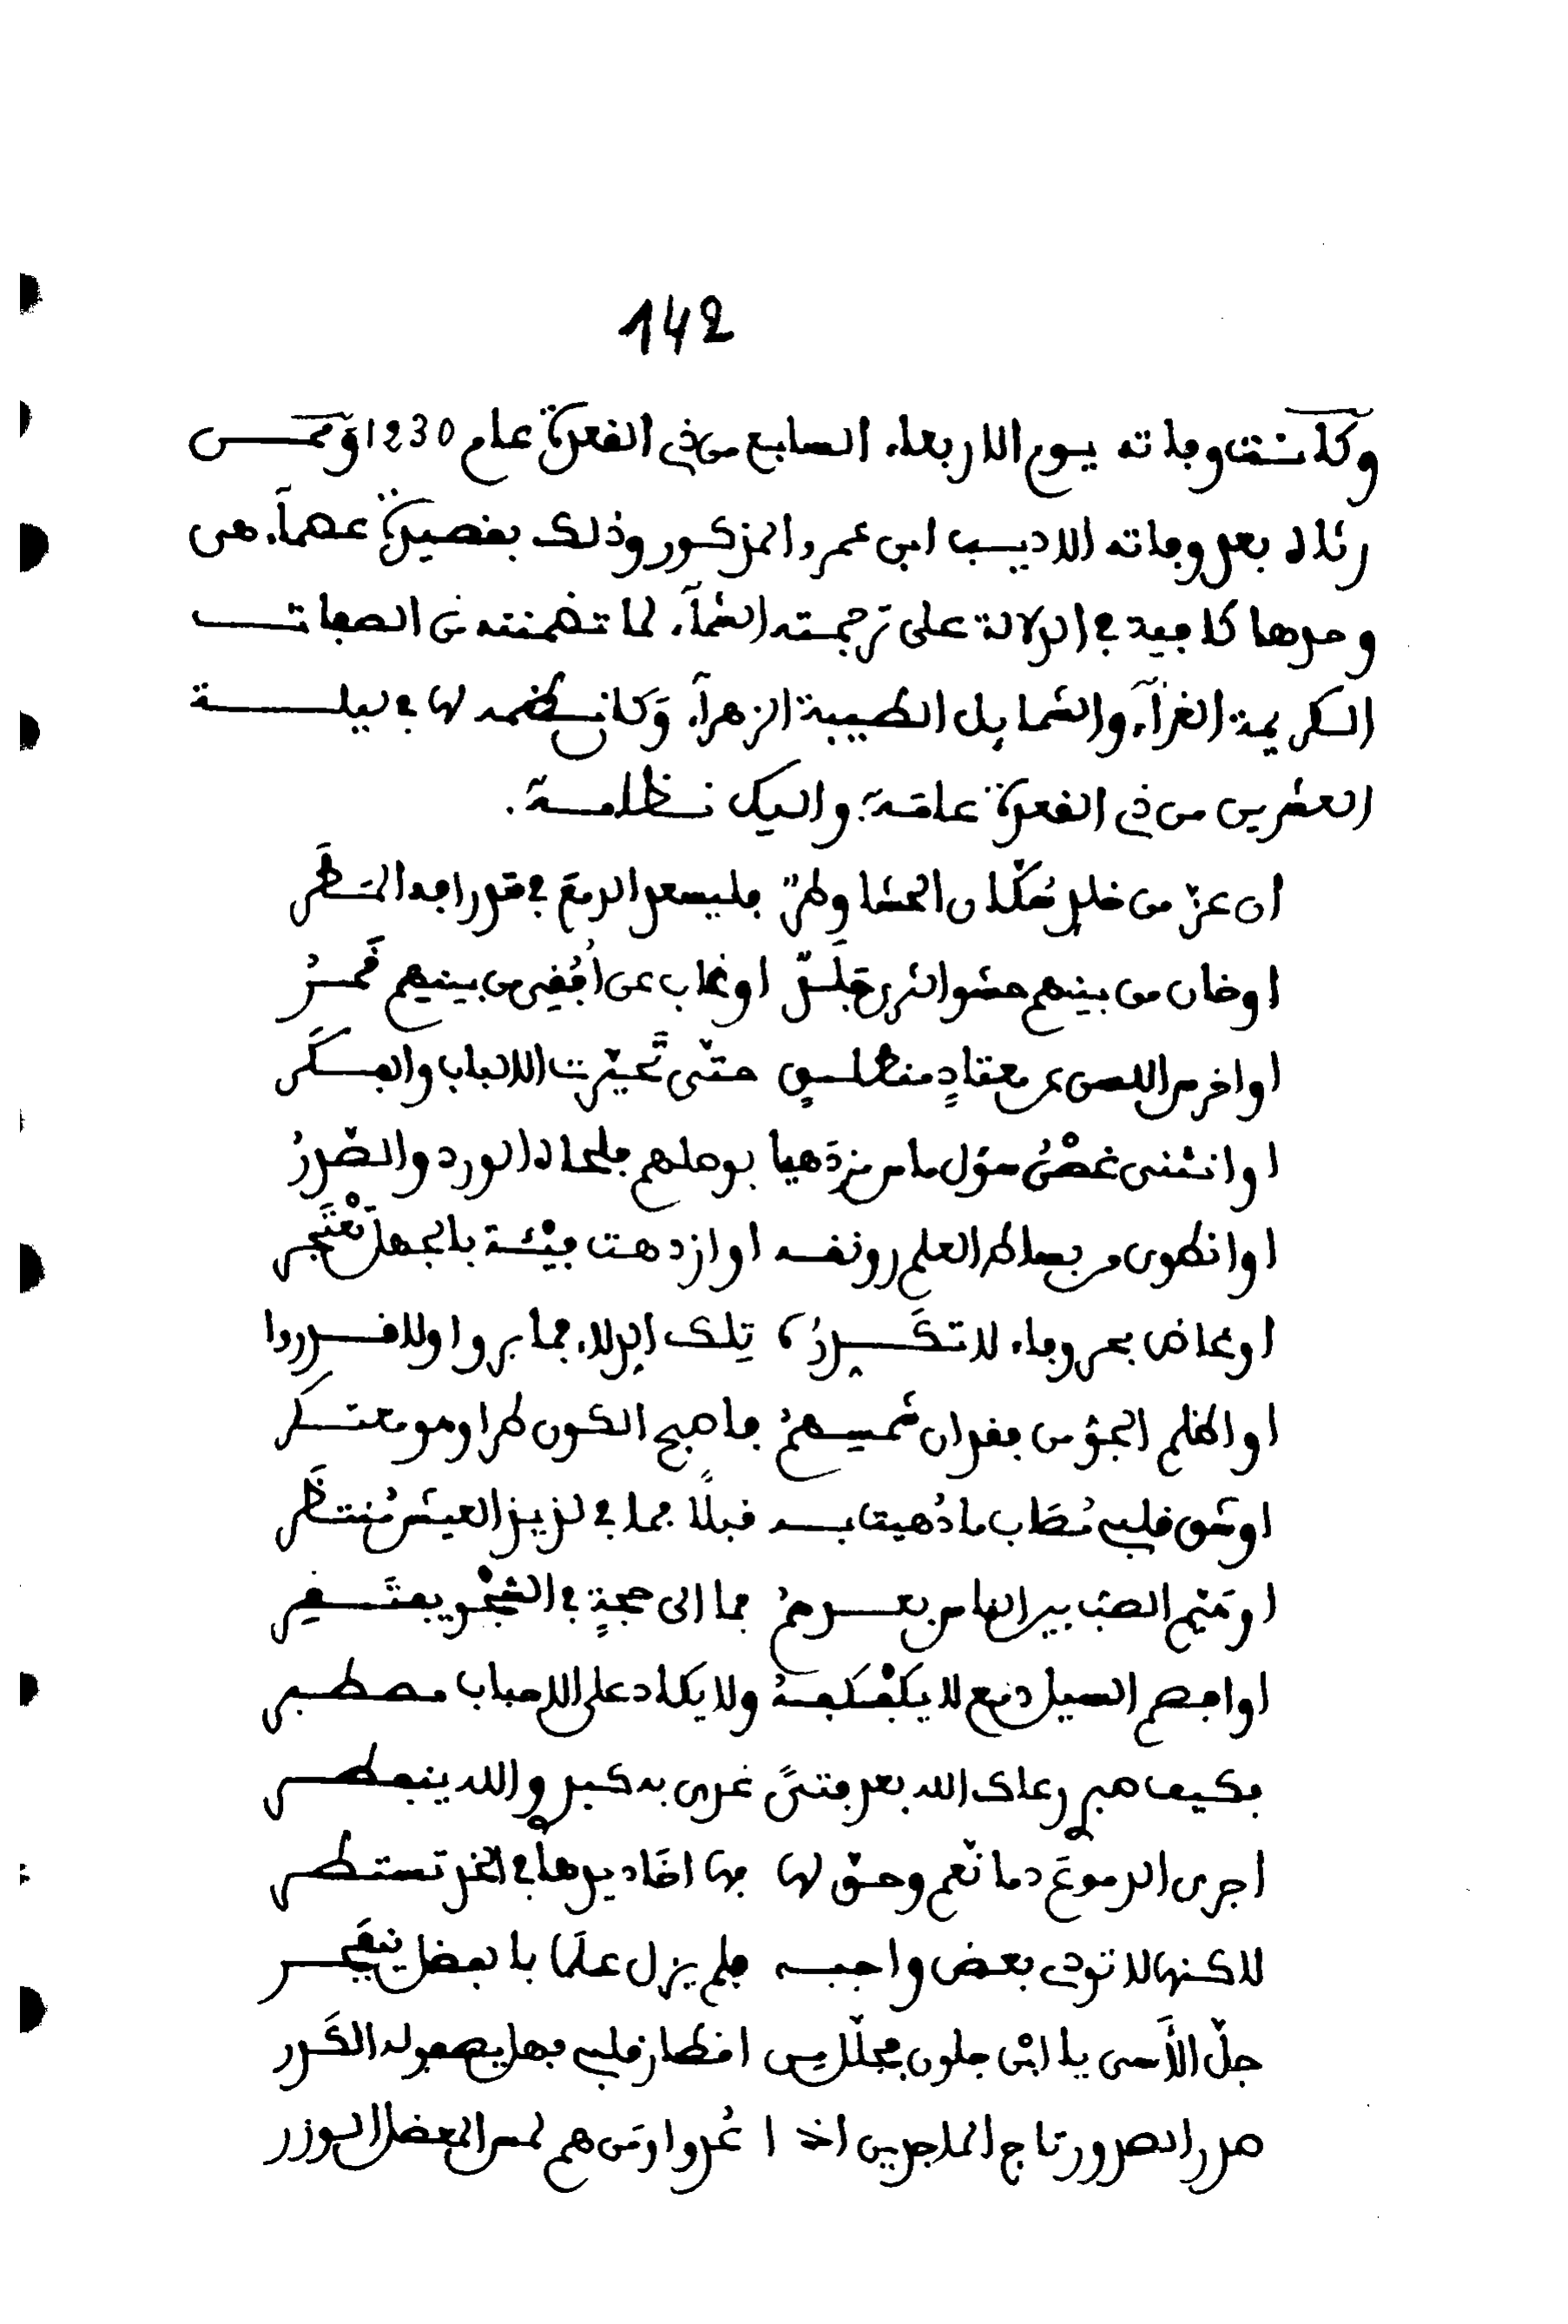 142
وكانت وفاته يوم الاربعاء السابع من ذي القعدة عام 1230 وممن
رثاه بعد وفاته الاديب ابن عمرو المذكور وذلك بقصيدة عصماء هي
وحدها كافية في الدلالة على ترجمته الشماء لما تضمنته من الصفات
الكريمة الغراء والشمايل الطيبة الزهراء وكان نظمه لها في ليلة
العشرين من ذي القعدة عامه واليك نظامه.
ان عز من خلد سُكّان الحشا وطر فليسعد الدمع في مقدرافه النظر
او خان من بينهم حشو الثرى جلد او غاب عن افقى من بينهم قمر
او اخرس اللسن عن معتاد منطلس حتى تحيرت الالباب والفكر
او انثنى غصن سؤل ماس مزدهيا بوصلهم فلحاه الورد والصدر
او انطوى من بساط العلم رونقه او ازدهت فئة بالجهل تعتجر
او غاض بحر وفاء لا تكدره تلك الدلاء فما بروا ولا قدروا
او اظلم الجو من فقدان شمسهم فاصبح الكون طرا وهو معتكر
او شق قلبي مُصَاب ما دُهيت به قبلًا فما في لذيذ العيش مُنتظر
او تيم الصب بين الناس بعدهم فما الى حجة في الشجو يفتقر
او افحم السيل دمع لا يكفكفه ولا يكاد على الاحباب مصطبر
فكيف صبر رعاك الله بعد فتىً غدى به كبد والله ينفطر
اجرى الدموع دما نعم وحق لها بها اخاديدها في الخد تستطر
لاكنها لا تودى بعض واجبه فلم يزل علما بالفضل ينفجر
جلّ الأسى يا ابْن جلون فجلل من اقطار قلبي فهل يصفو له الكدر
صدر الصدور تاج الماجدين اذا عُدوا ومن هم لمس المعضل الوزر